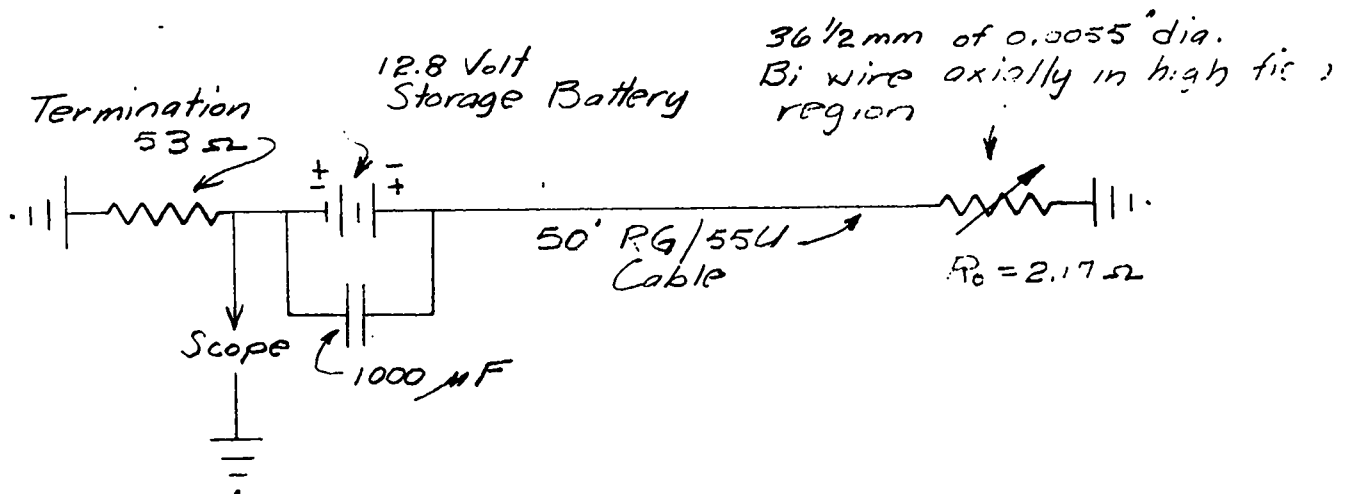 36 1/2 mm of 0.0055" dia.
Bi wire axially in high
region
12.8 Volt
Storage Battery
Termination
53 Ω
±
-
+
50' RG/55U
Cable
R₀ = 2.17 Ω
Scope
1000 μF